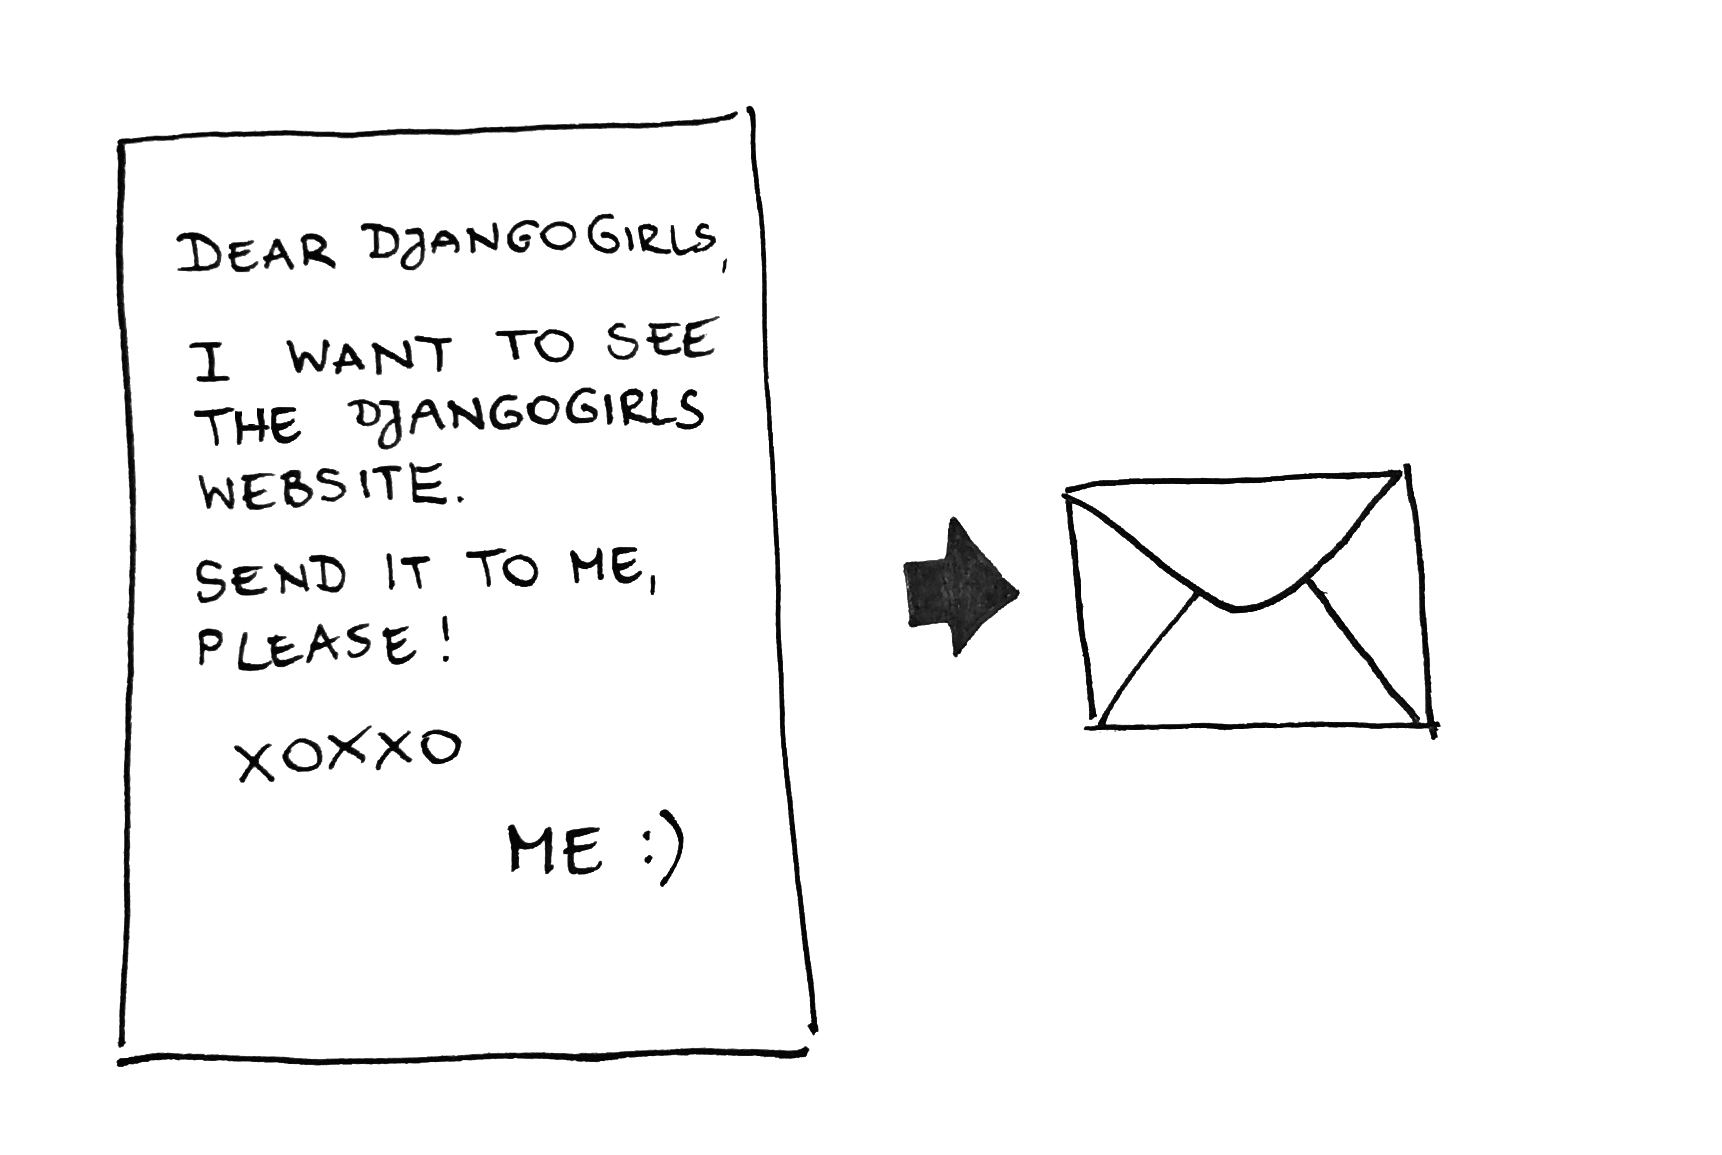 DEAR DJANGOGIRLS,
I WANT TO SEE
THE DJANGOGIRLS
WEBSITE.
SEND IT TO ME,
PLEASE!
XOXXO
ME :)